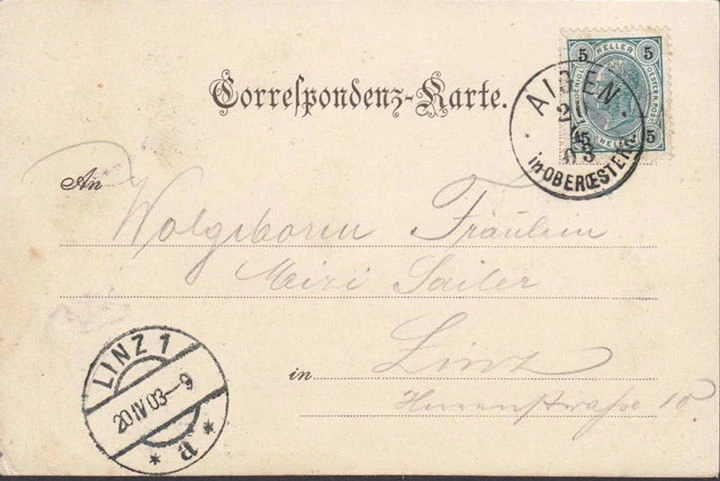 5 HELLER 5
5 HELLER 5
Correspondenz-Karte.
AIGEN
03
in OBERŒSTERR.
An
Wolgeboren Fräulein
Mizi Sailer
LINZ 1
20 IV 03-9
* a *
in
Linz
Herrenstrasse 10